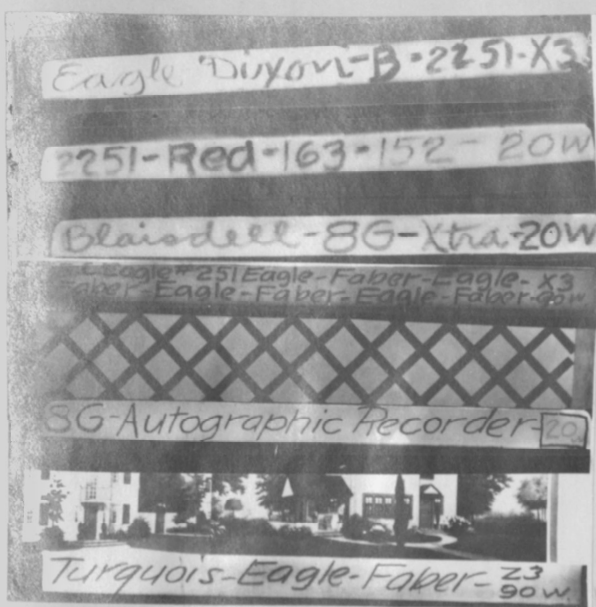 Eagle Dixon-B-2251-X3
2251-Red-163-152-20W
Blaisdell-8G-Xtra-20W
Eagle#251 Eagle-Faber-Eagle-X3
Faber-Eagle-Faber-Eagle-Faber-90W
8G-Autographic Recorder-20
Turquois-Eagle-Faber-Z3
90W